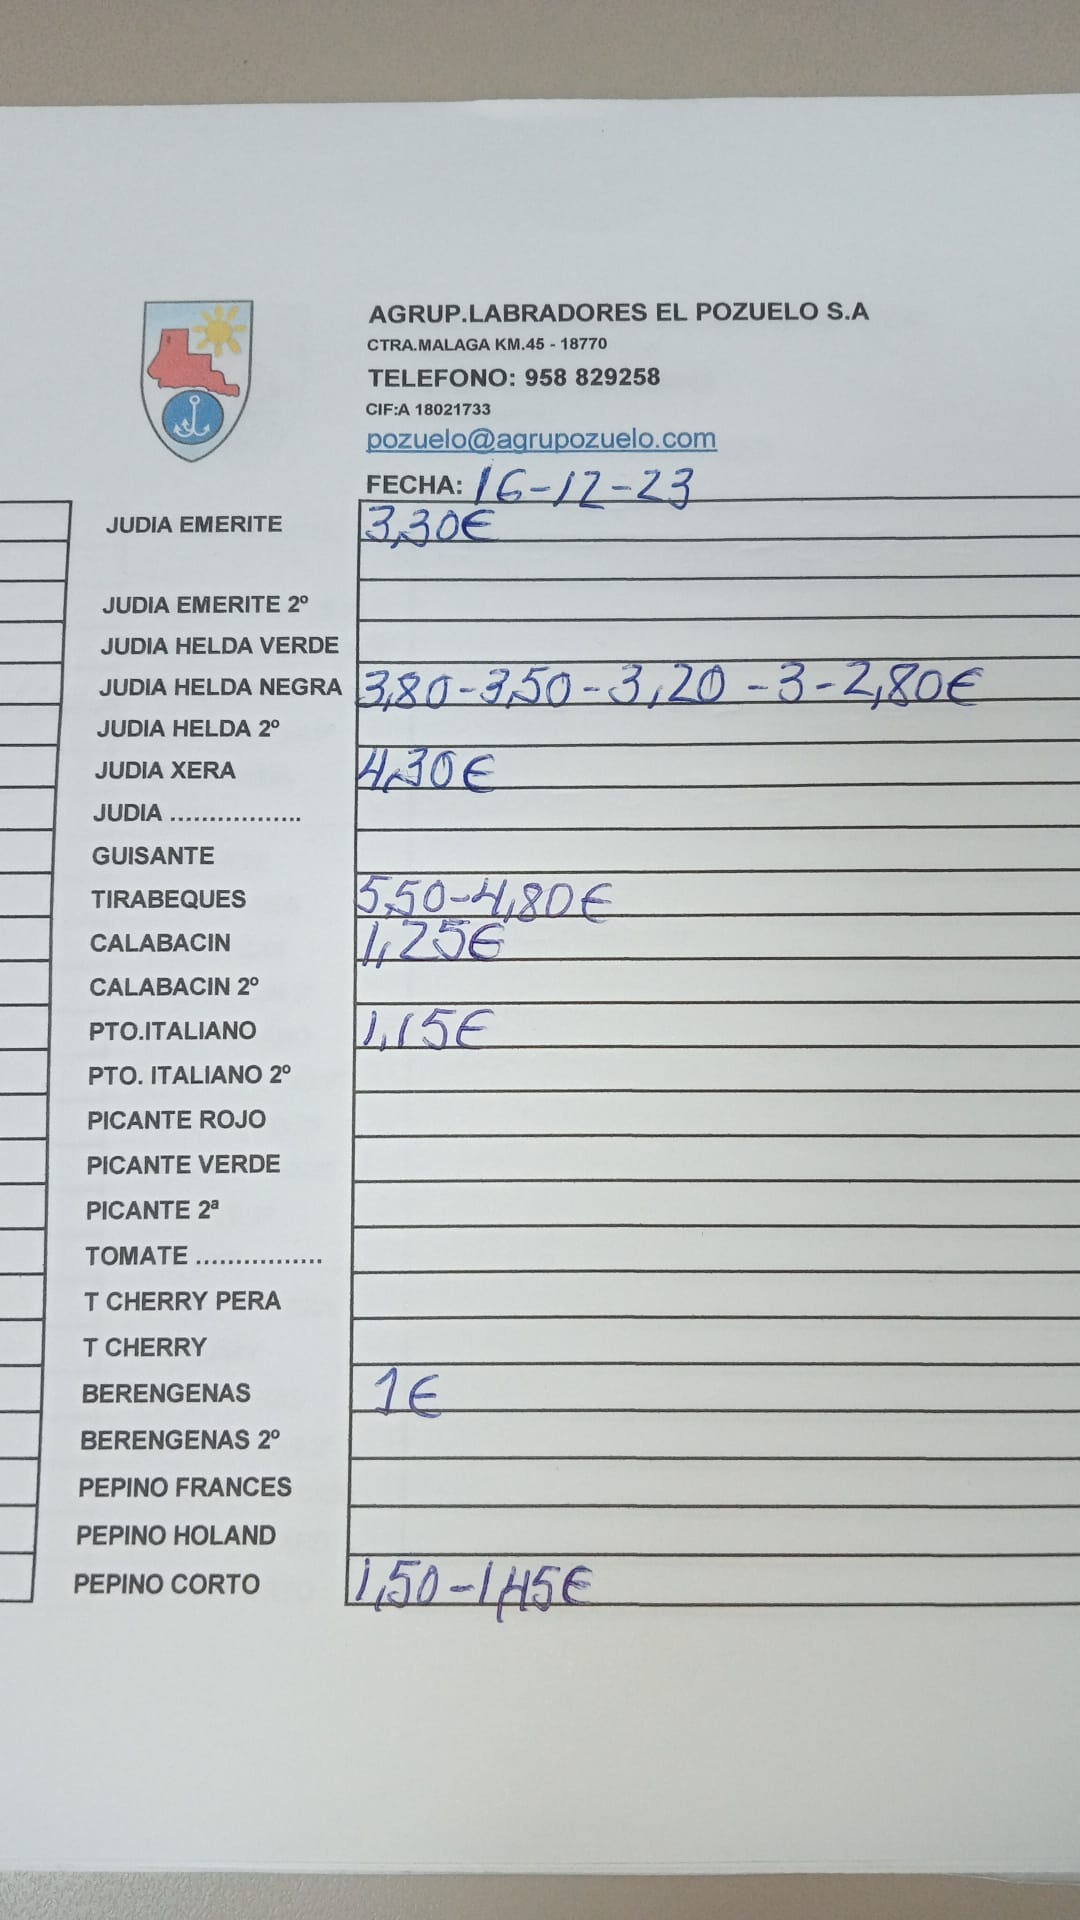 AGRUP.LABRADORES EL POZUELO S.A
CTRA.MALAGA KM.45 - 18770
TELEFONO: 958 829258
CIF:A 18021733
pozuelo@agrupozuelo.com
FECHA: 16-12-23
JUDIA EMERITE 3,30€
JUDIA EMERITE 2º
JUDIA HELDA VERDE
JUDIA HELDA NEGRA 3,80-3,50-3,20-3-2,80€
JUDIA HELDA 2º
JUDIA XERA 4,30€
JUDIA .................
GUISANTE
TIRABEQUES 5,50-4,80€
CALABACIN 1,25€
CALABACIN 2º
PTO.ITALIANO 1,15€
PTO. ITALIANO 2º
PICANTE ROJO
PICANTE VERDE
PICANTE 2ª
TOMATE ................
T CHERRY PERA
T CHERRY
BERENGENAS 1€
BERENGENAS 2º
PEPINO FRANCES
PEPINO HOLAND
PEPINO CORTO 1,50-1,45€